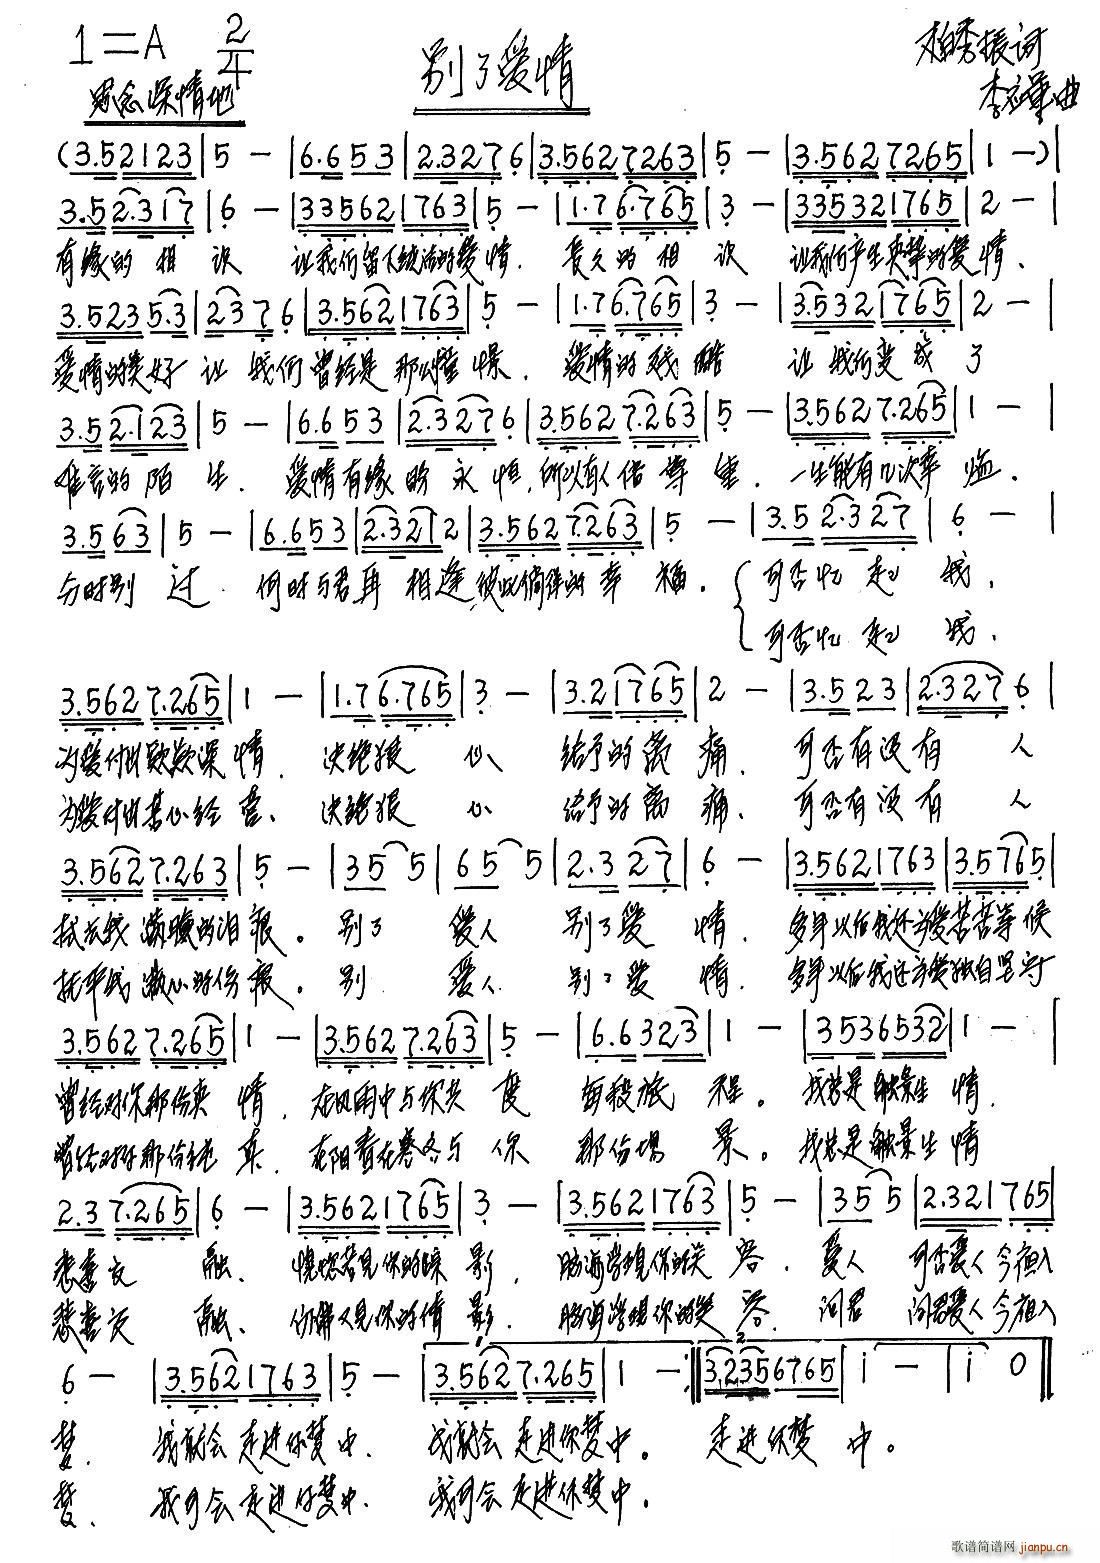 1=A 2/4 别了爱情 柏秀振词
思念深情地 李 曲
(3.52123|5 — |6.6 5 3|2.3276|3.5627263|5 — |3.5627265|1 —)|
3.52.317|6 — |335621763|5 — |1.76.765|3 — |335321765|2 — |
有缘的相识 让我们留下纯洁的爱情. 长久的相识 让我们产生真挚的爱情.
3.5235.3|2376|3.5621763|5 — |1.76.765|3 — |3.5321765|2 — |
爱情的美好让我们曾经是那么憧憬. 爱情的残酷 让我们变成了
3.52.123|5 — |6.6 5 3|2.3276|3.5627.263|5 — |3.5627.265|1 — |
难言的陌生. 爱情有缘的永恒,所以有人倍尊重. 一生能有几次幸 .
3.563|5 — |6.653|2.3212|3.5627.263|5 — |3.52.327|6 — |
与时别过. 何时与君再相逢彼此倘徉的幸福. 可否忆起我.
可否忆起我.
3.5627.265|1 — |1.76.765|3 — |3.21765|2 — |3.523|2.3276|
为爱付出款款深情. 决绝狠心 给予的离痛. 可否有没有人
为爱付出苦心经营. 决绝狠心 给予的离痛. 可否有没有人
3.5627.263|5 — |355|655|2.327|6 — |3.5621763|3.5765|
拭去我满腮的泪痕。别了爱人 别了爱情. 多年以后我还为爱苦苦等候
抚平我满心的伤痕。别 爱人 别了爱情. 多年以后我还为爱独自坚守
3.5627.265|1 — |3.5627.263|5 — |6.6323|1 — |3536532|1 — |
曾经对你那份真情. 在风雨中与你共度 每段旅程。我总是触景生情.
曾经对你那份纯真. 在阳春在寒冬与你 那份场景。我总是触景生情
2.37.265|6 — |3.5621765|3 — |3.5621763|5 — |355|2.321765|
悲喜交融. 恍惚若见你的踪影. 脑海常现你的笑容. 爱人 可否爱人今夜入
悲喜交融. 仿佛又见你的倩影. 脑海常现你的笑容. 问君 问君爱人今夜入
6 — |3.5621763|5 — |3.5627.265|1 — :‖3.2356765|i — |i 0‖
梦. 我就会走进你梦中. 我就会走进你梦中。 走进你梦中。
梦. 我可会走进你梦中. 我可会走进你梦中。
歌谱简谱网
jianpu.cn